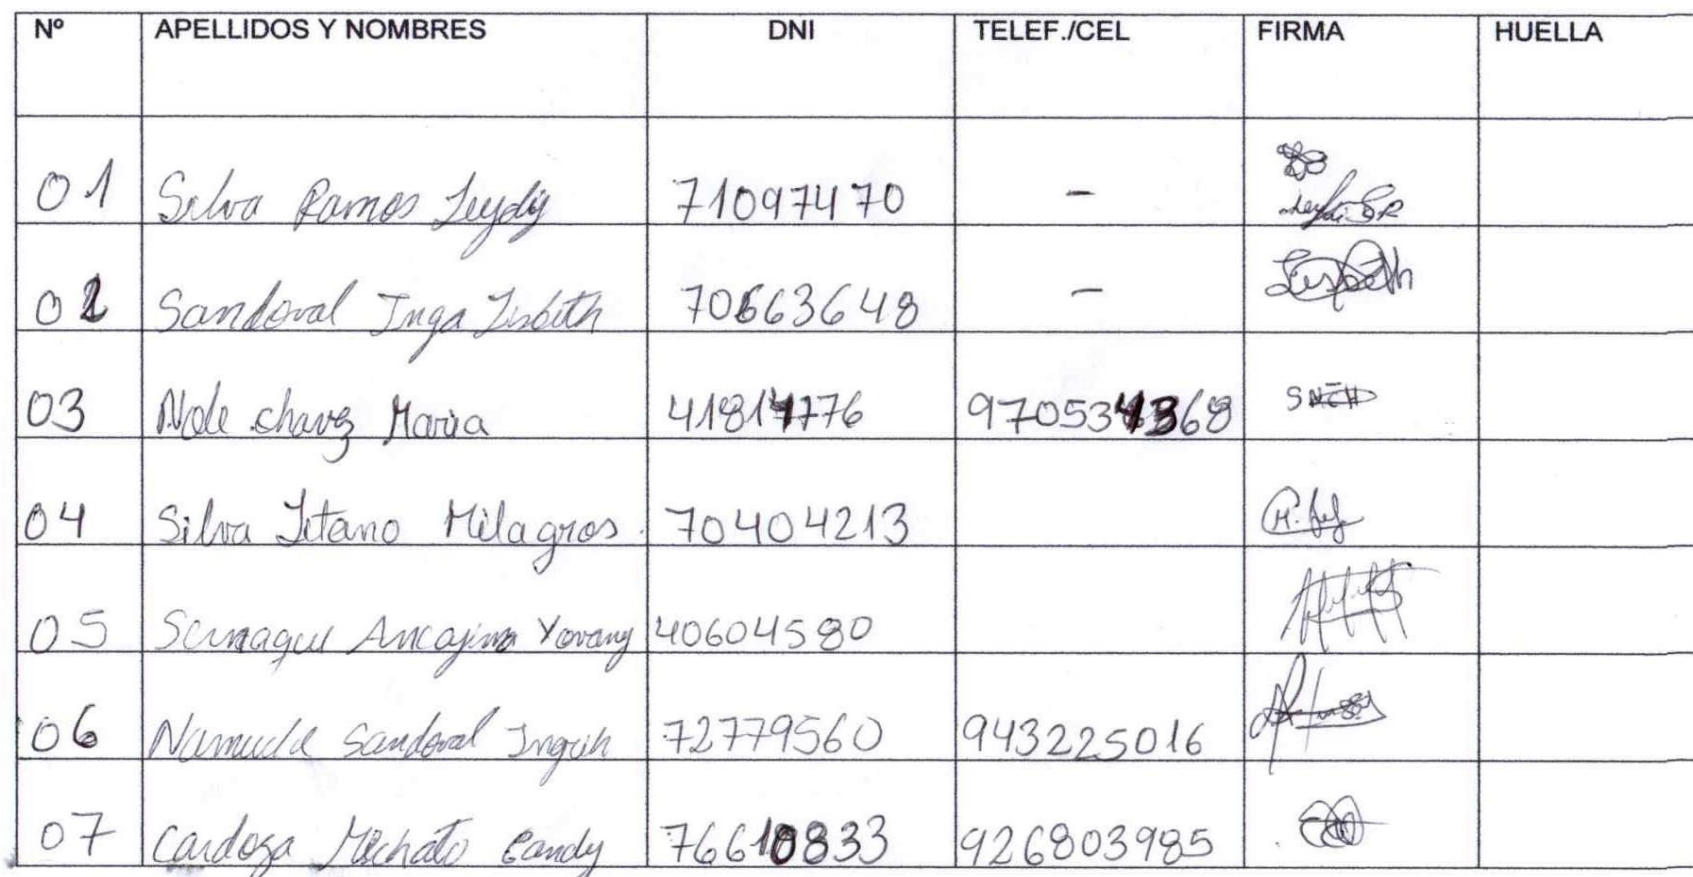 Nº APELLIDOS Y NOMBRES DNI TELEF./CEL FIRMA HUELLA
01 Silva Ramos Leydy 71097470 -
02 Sandoval Inga Lisbeth 70663648 - Lisbeth
03 Nole chavez Maria 41817776 970534368
04 Silva Litano Milagros 70404213
05 Sunaque Ancajima Yovany 40604580
06 Namuche Sandoval Ingrih 72779560 943225016
07 Cardoza Machato Candy 76618833 926803985